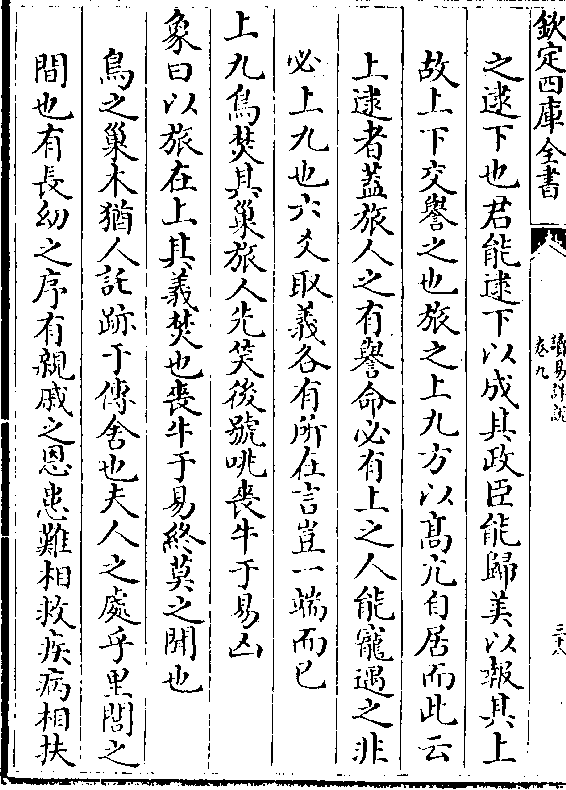 欽定四庫全書
讀易詳說
卷九
三十八
之逮下也君能逮下以成其政臣能歸美以報其上
故上下交譽之也旅之上九方以髙亢自居而此云
上逮者蓋旅人之有譽命必有上之人能寵遇之非
必上九也六爻取義各有所在言豈一端而已
上九鳥焚其巢旅人先笑後號咷喪牛于易凶
象曰以旅在上其義焚也喪牛于易終莫之聞也
鳥之巢木猶人託跡于傳舍也夫人之處乎里閭之
間也有長幼之序有親戚之恩患難相救疾病相扶